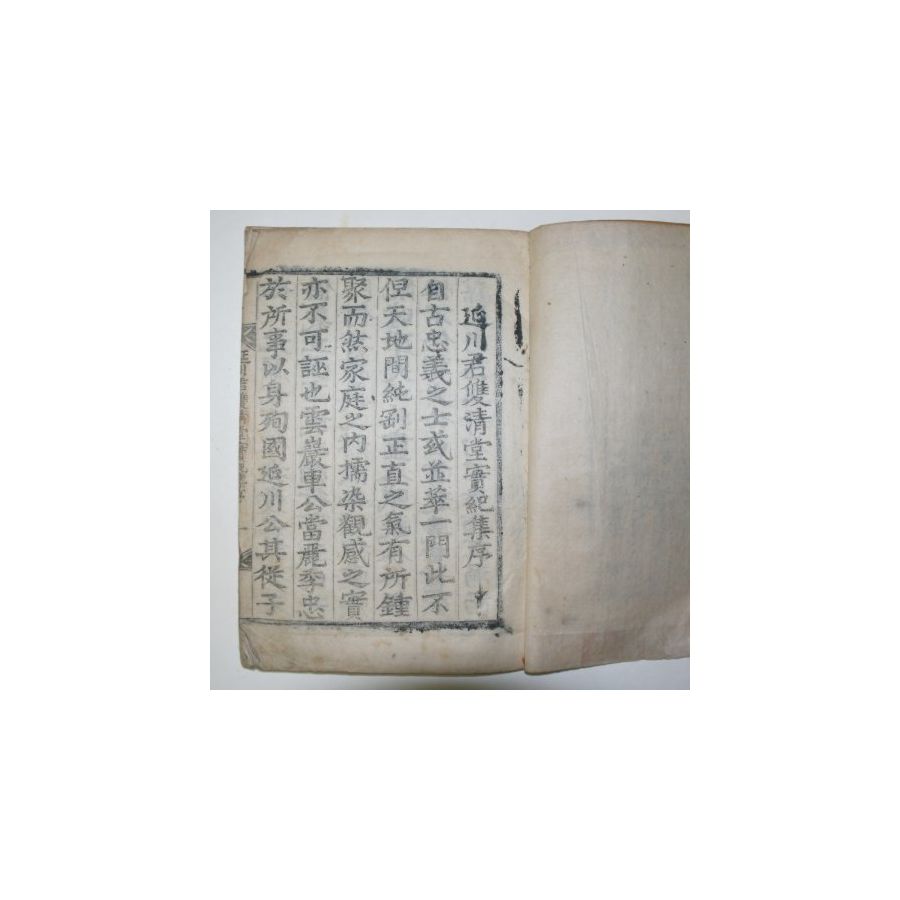 延川君雙清堂實紀集序
自古忠義之士或並萃一門此不
但天地間純剛正直之氣有所鍾
聚而然家庭之內擩染觀感之實
亦不可誣也雲巖車公當麗季忠
於所事以身殉國延川公其從子